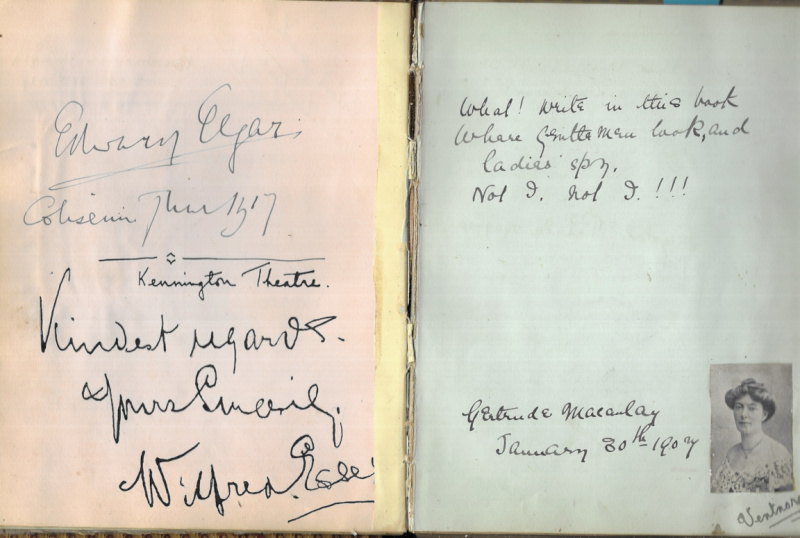 Edward Elgar
Coliseum
Kennington Theatre.
Kindest regards.
Yours Sincerely,
Wilfred
What! Write in this book
Where gentlemen look, and
ladies' spy.
Not I. not I.!!!
Gertrude Macaulay
January 30th 1907
Ventnor